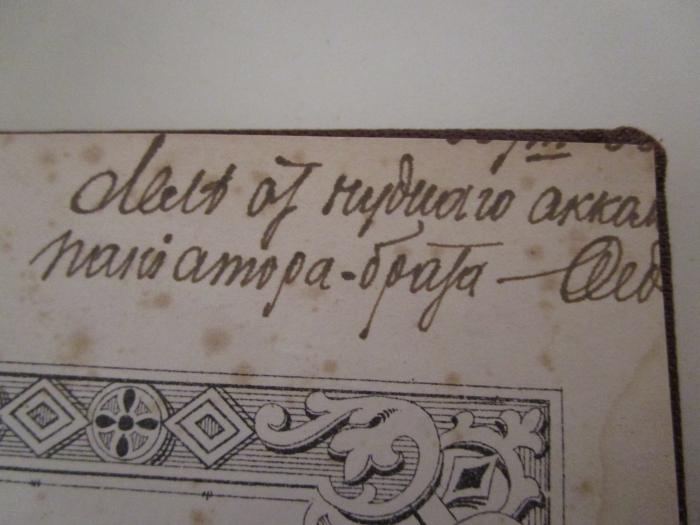 от нуднаго акком
паніатора-брата — Ѳед